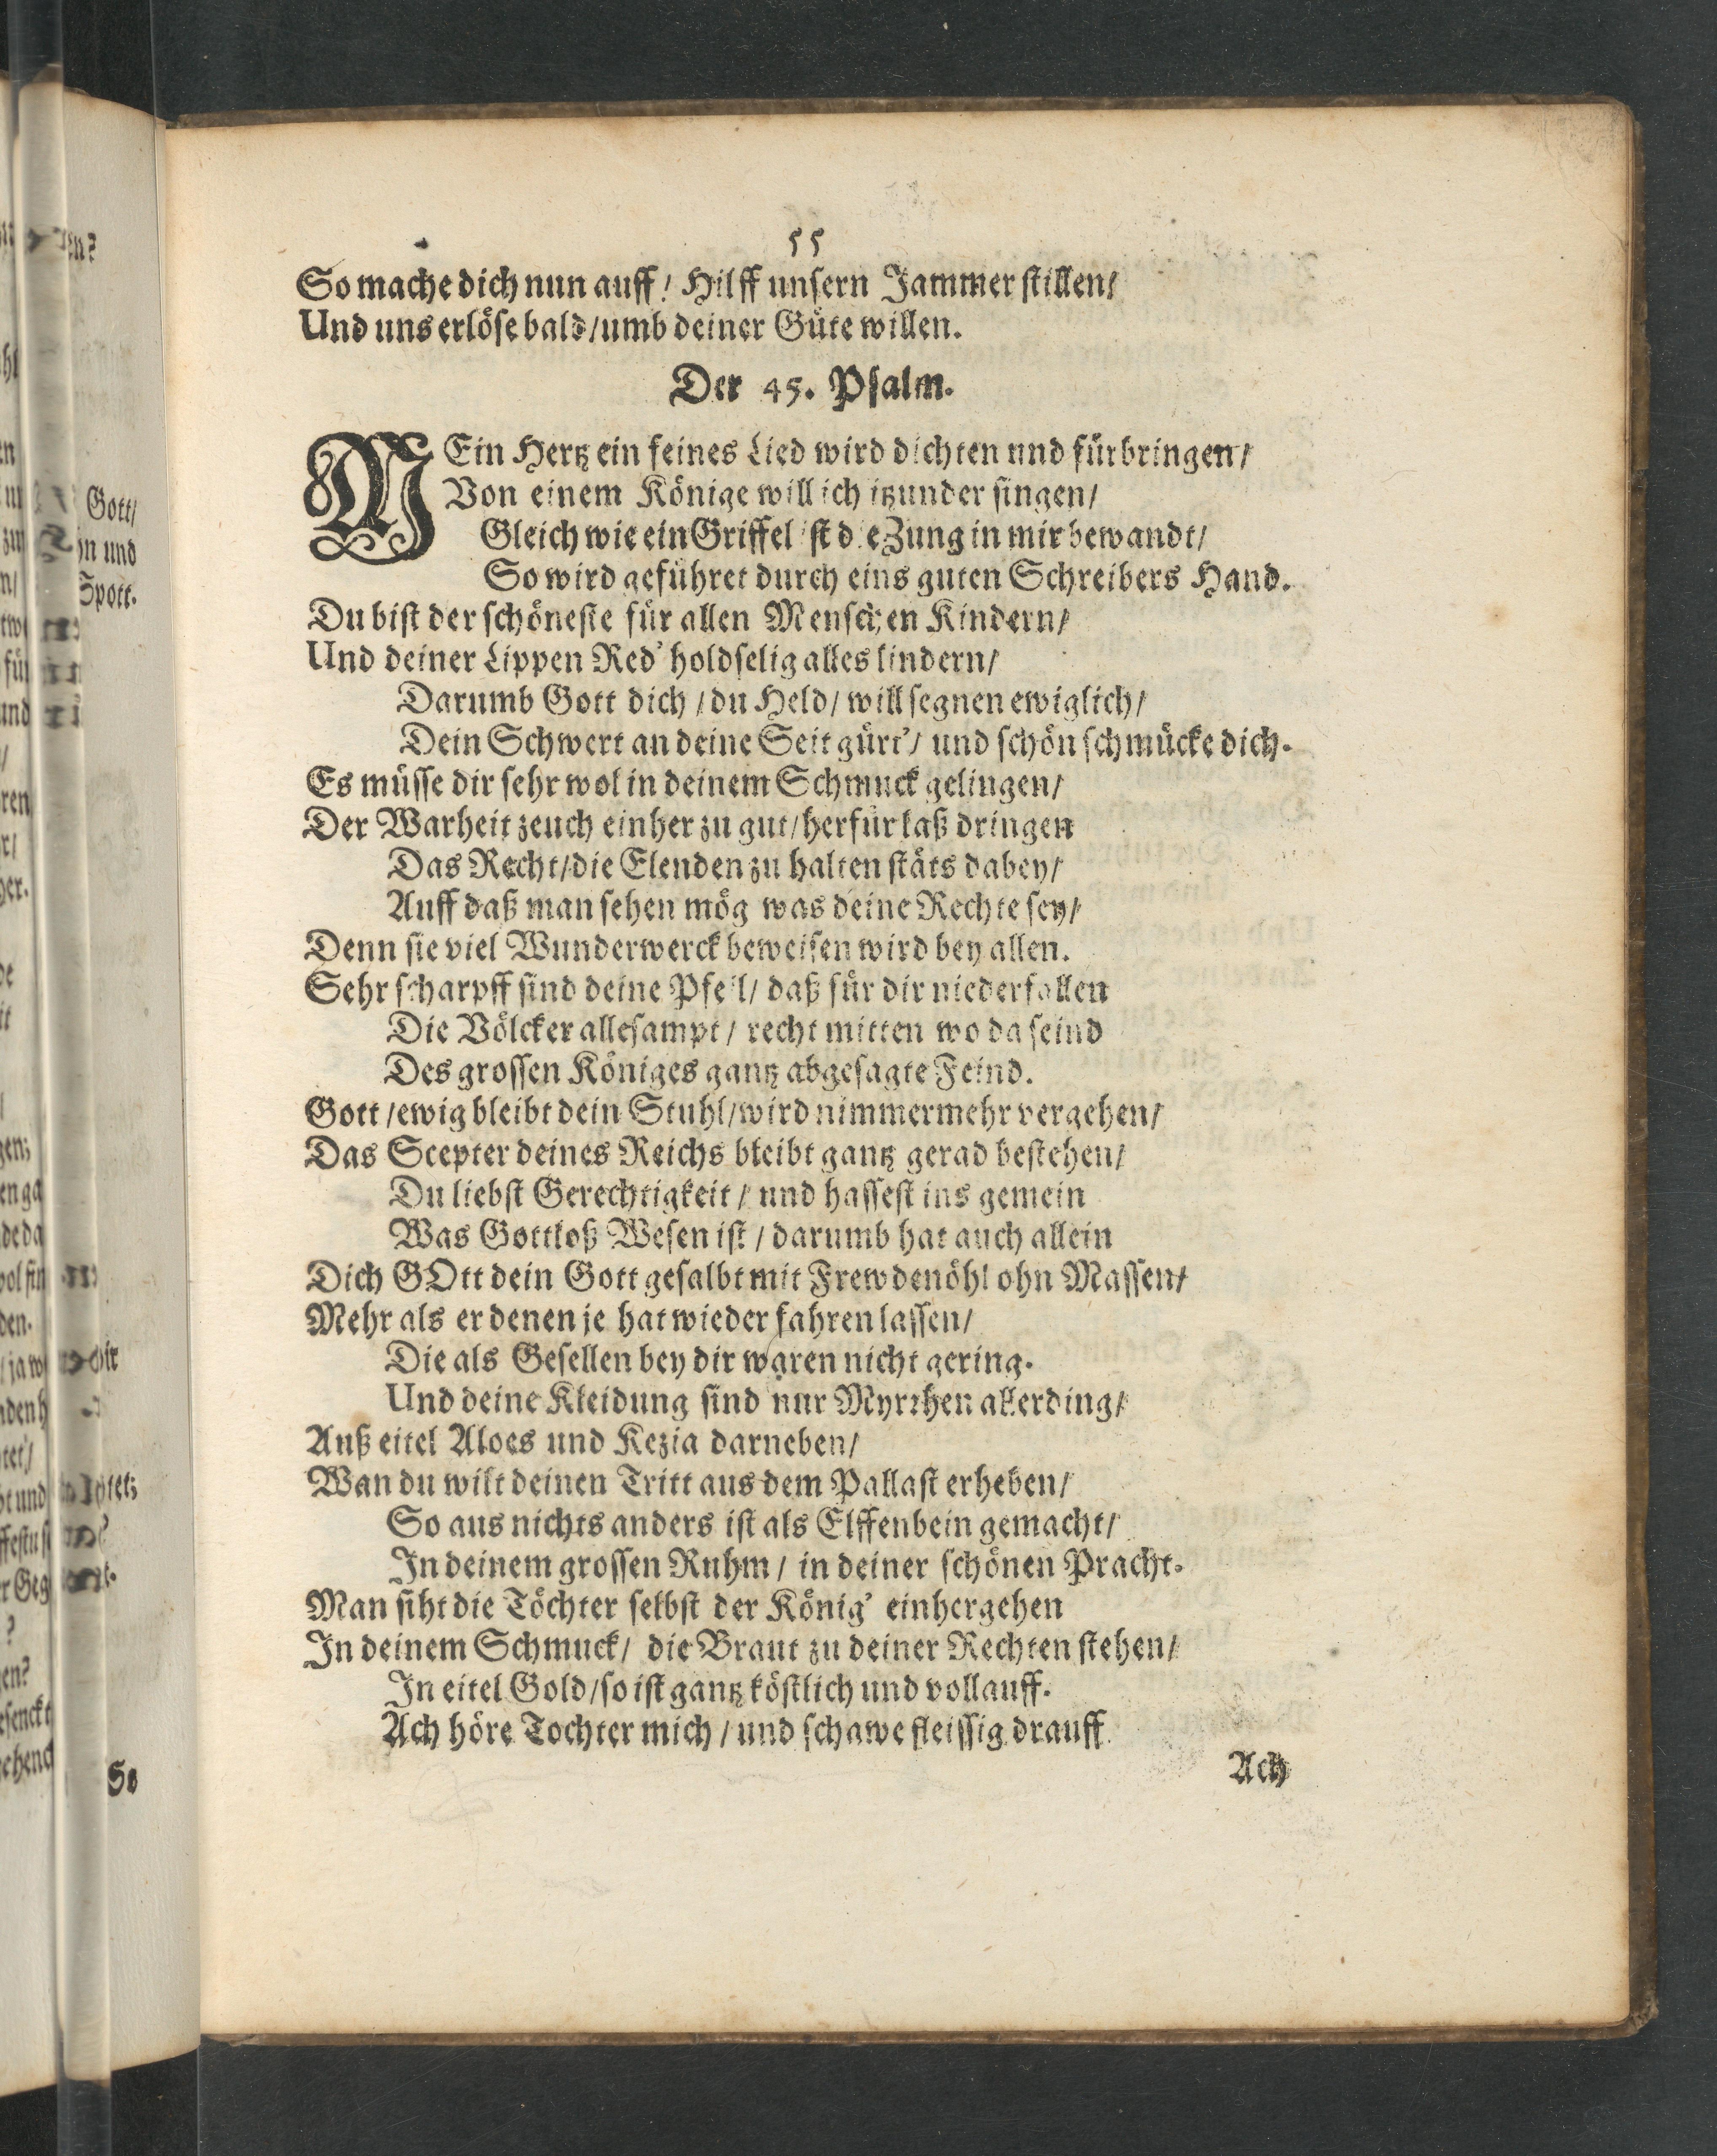 55
So mache dich nun auff/ Hilff unsern Jammer stillen/
Und uns erlöse bald/umb deiner Güte willen.
Der 45. Psalm.
MEin Hertz ein feines Lied wird dichten und fürbringen/
Von einem Könige will ich itzunder singen/
Gleich wie ein Griffel ist die Zung in mir bewandt/
So wird geführet durch eins guten Schreibers Hand.
Du bist der schöneste für allen Menschen Kindern/
Und deiner Lippen Red' holdselig alles lindern/
Darumb Gott dich/du Held/ will segnen ewiglich/
Dein Schwert an deine Seit gürt'/ und schön schmücke dich.
Es müsse dir sehr wol in deinem Schmuck gelingen/
Der Warheit zeuch einher zu gut/herfür laß dringen
Das Recht/die Elenden zu halten stäts dabey/
Auff daß man sehen mög was deine Rechte sey/
Denn sie viel Wunderwerck beweisen wird bey allen.
Sehr scharpff sind deine Pfeil/ daß für dir niederfallen
Die Völcker allesampt/ recht mitten wo da seind
Des grossen Königes gantz abgesagte Feind.
Gott/ewig bleibt dein Stuhl/wird nimmermehr vergehen/
Das Scepter deines Reichs bleibt gantz gerad bestehen/
Du liebst Gerechtigkeit/ und hassest ins gemein
Was Gottloß Wesen ist/ darumb hat auch allein
Dich GOtt dein Gott gesalbt mit Frewdenöhl ohn Massen/
Mehr als er denen je hat wieder fahren lassen/
Die als Gesellen bey dir waren nicht gering.
Und deine Kleidung sind nur Myrrhen allerding/
Auß eitel Aloes und Kezia darneben/
Wan du wilt deinen Tritt aus dem Pallast erheben/
So aus nichts anders ist als Elffenbein gemacht/
In deinem grossen Ruhm/ in deiner schönen Pracht.
Man siht die Töchter selbst der König' einhergehen
In deinem Schmuck/ die Braut zu deiner Rechten stehen/
In eitel Gold/so ist gantz köstlich und vollauff.
Ach höre Tochter mich/und schawe fleissig drauff
Ach